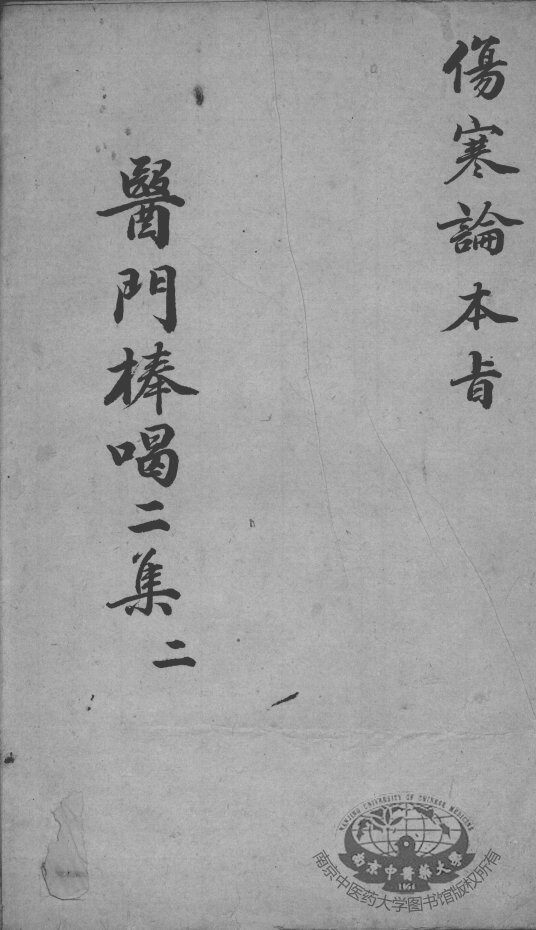 傷寒論本旨
醫門棒喝二集 二
NANJING UNIVERSITY OF CHINESE MEDICINE
南京中醫藥大學
1954
南京中医药大学图书馆版权所有